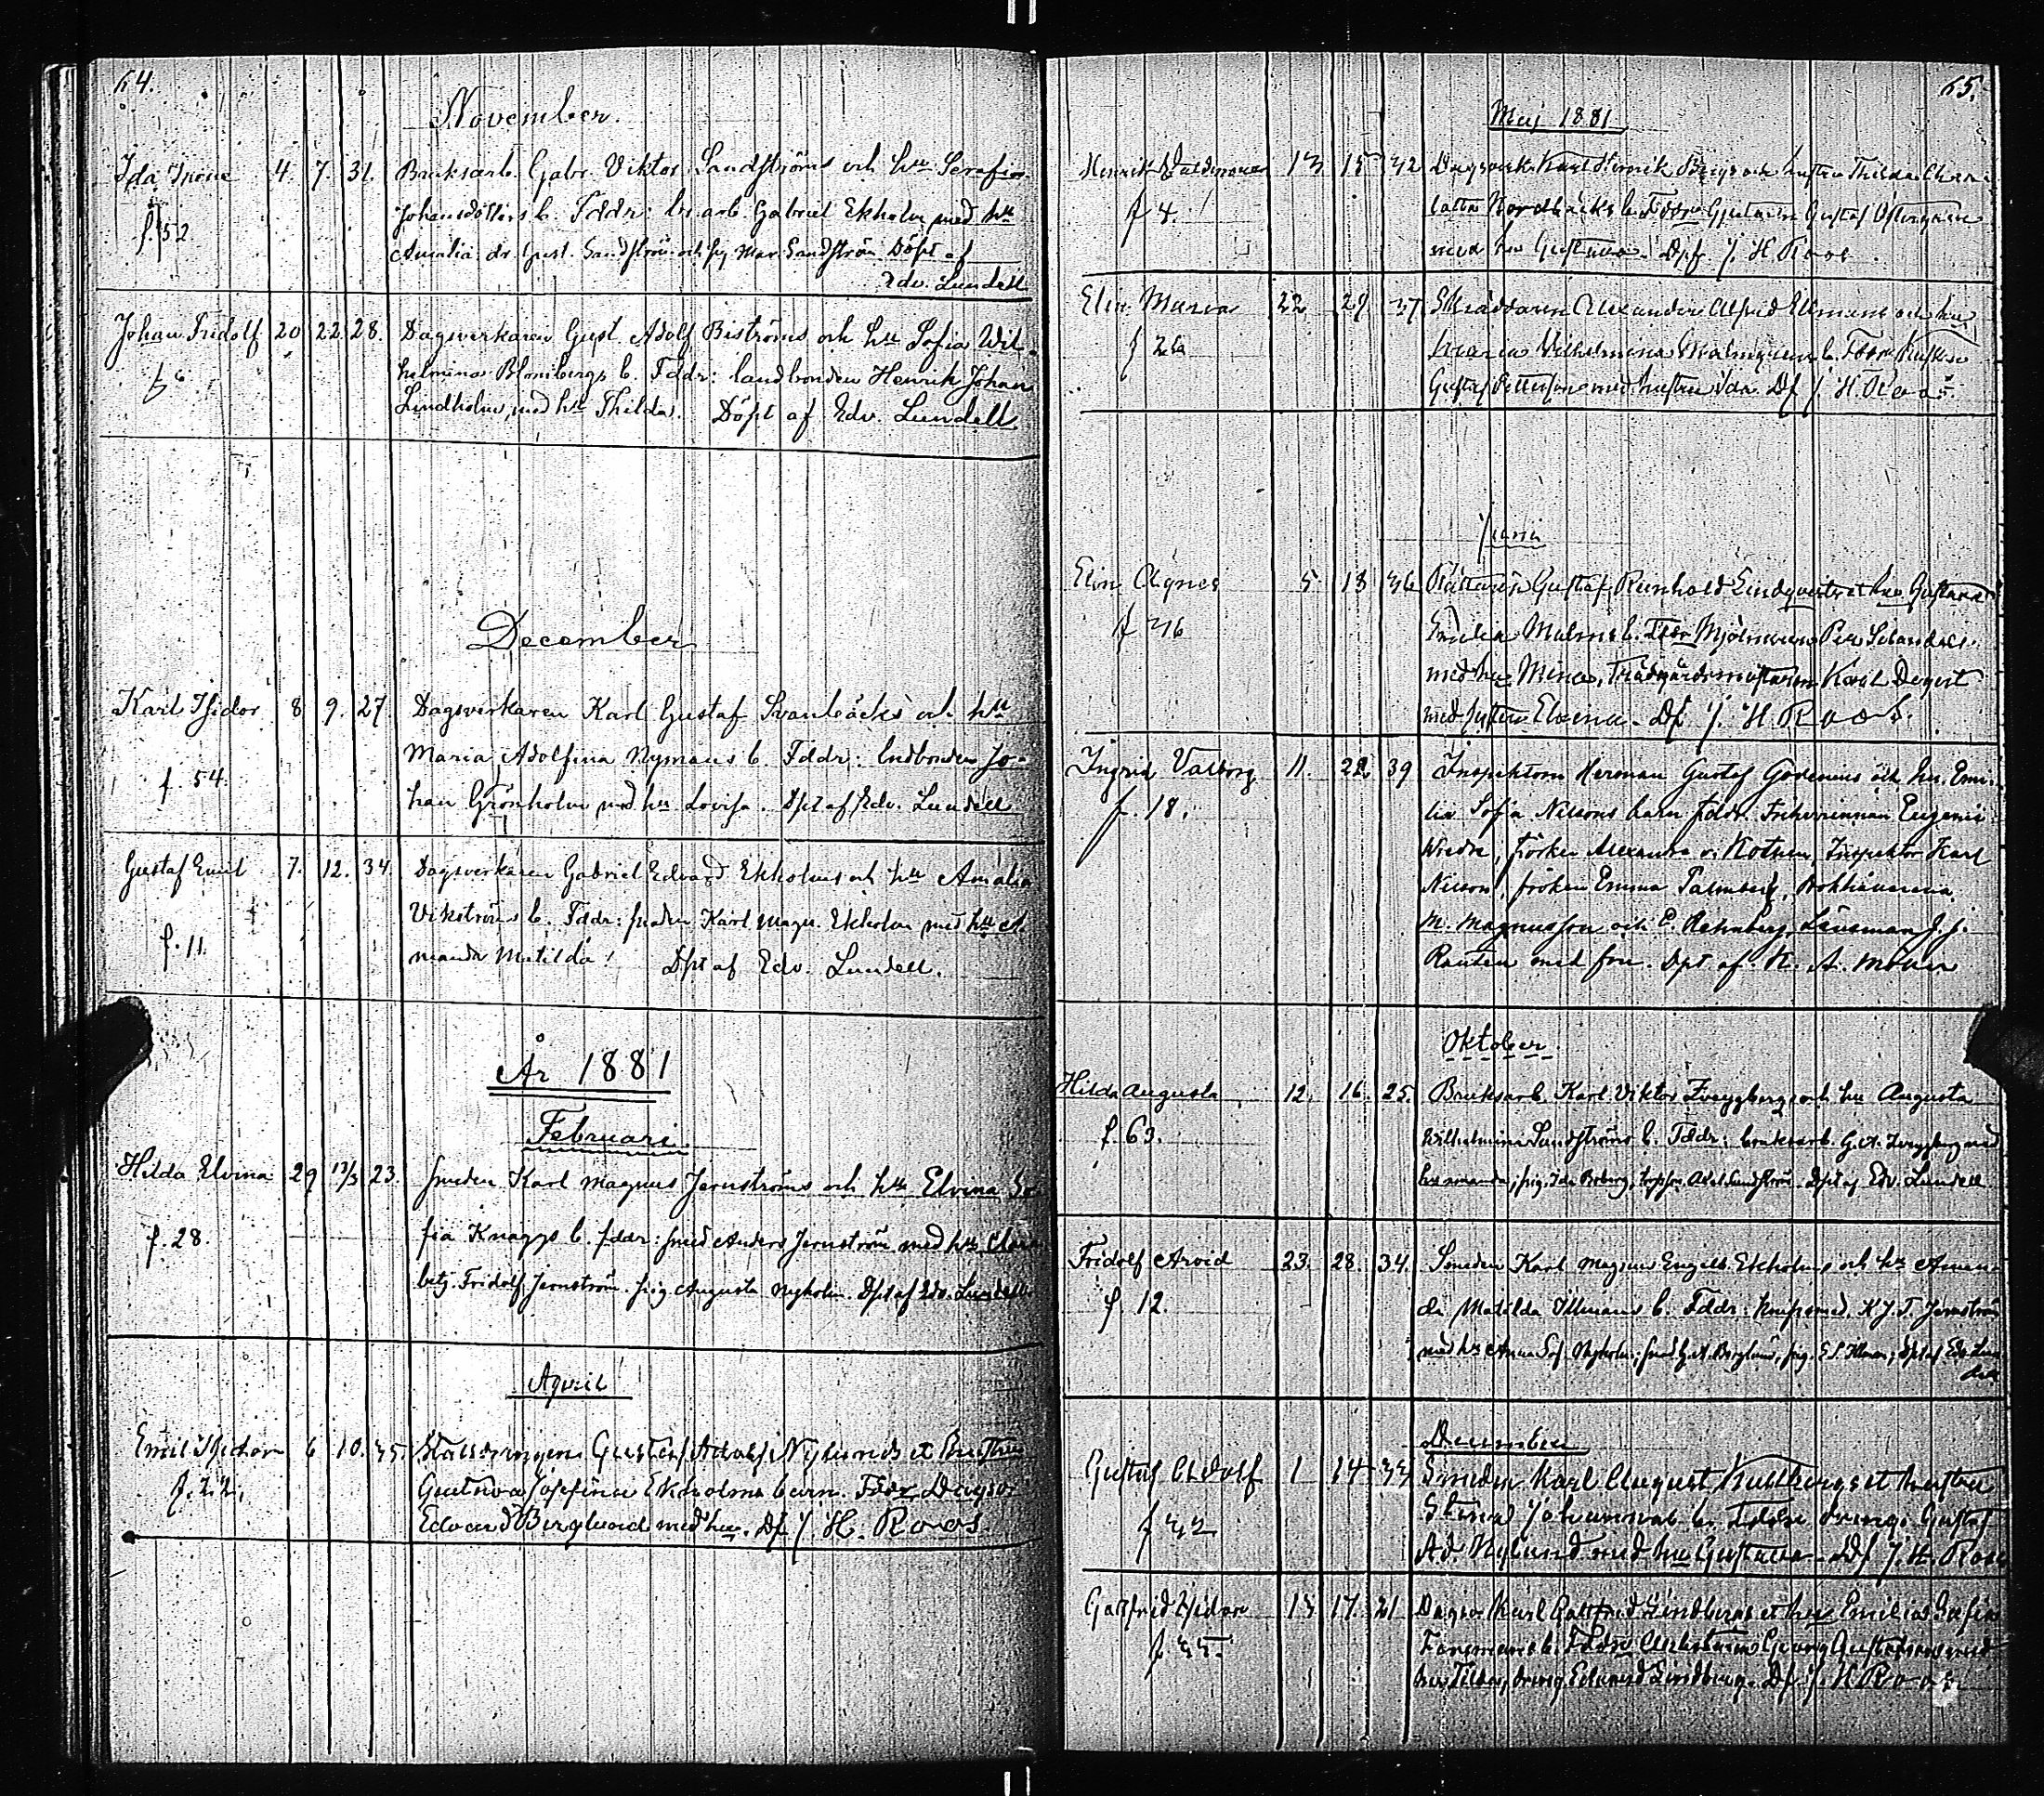 64.
November.
Ida Irene 4. 7. 31. Bruksarb. Gabr. Viktor Sandströms och hu Serafina
f. 52 Johansdotters b. Fddr: br. arb. Gabriel Ekholm med hu
Amalia dr. Gust. Sandström och pig Mar. Sandström Döpt af
Edv. Lundell
Johan Fridolf 20 22. 28. Dagsverkaren Gust. Adolf Biströms och hu Sofia Wil-
f 6 helmina Blombergs b. Fddr: landbonden Henrik Johan
Lindholm med hu Thilda. Döpt af Edv. Lundell
December
Karl Isidor 8 9. 27. Dagsverkaren Karl Gustaf Svanbäcks och hu
f. 54. Maria Adolfina Nymans b. Fddr: lndbonden Jo-
han Grönholm med hu Lovisa. Dpt af Edv. Lundell
Gustaf Emil 7. 12. 34. Dagsverkaren Gabriel Edvard Ekholms och hu Amalia
f. 11. Vikströms b. Fddr: smeden Karl Magn. Ekholm med hu A-
manda Matilda. Dpt af Edv. Lundell.
År 1881
Februari.
Hilda Elvina 29 12/3 23. smeden Karl Magnus Jernströms och hu Elvina So-
f. 28. fia Knaggs b. fddr: smed Anders Jernström med hu
betj. Fridolf Jernström. pig. Augusta Nyholm. Dpt af Edv. Lundell
April
Emil Isidor 6 10. 35. Stalldrängen Gustaf Adolf Nylunds et hustru
f. 22. Gustava Josefina Ekholms barn. Fddr Dagsv
Edvard Berglund med hu. Df J. H. Roos.
65.
Maj 1881
Henrik Valdemar 13 15 32 Dagsverk. Karl Henrik Bergs och hustru Thilda Char-
f 4. lotta Nordbäcks b. Fddr Gjutaren Gustaf Östergren
med hu Gustava. Dpf. J. H. Roos.
Elin Maria 22 29 37 Skräddaren Alexander Alfred Ekmans och hu
f 26 Maria Vilhelmina Malmgrens b. Fddr Kusken
Gustaf Pettersson med hustru Ida Df J. H. Roos.
Juni
Elin Agnes 5 18 36 Rättaren Gustaf Reinhold Lindqvists et hu Gustava
f 36 Emilia Malms b. Fddr Mjölnaren Per Selanders
med hu Mina, Trädgårdsmästaren Karl Degert
med syster Elvina. Df J. H. Roos.
Ingrid Valborg 11. 22. 39 Inspektorn Herman Gustaf Godenius och hu. Emi-
f. 18. lia Sofia Nilsons barn fddr. Friherrinnan Eugenie
Wrede, fröken Alexandra v. Kothen, Inspektor Karl
Nilson, fröken Emma Palmberg, Bokhållarena
M. Magnusson och E. Rehnberg, Länsman J. J.
Ranten med fru. Dpt. af. K. A. Moller
Oktober.
Hilda Augusta 12. 16. 25. Bruksarb. Karl Viktor Zweygbergs och hu Augusta
f. 63. Wilhelmina Sundströms b. Fddr: bruksarb. G. A. Zweygberg med
hu Amanda, pig. Ida Boberg, Axel Sundström. Dpt af Edv. Lundell
Fridolf Arvid 23. 28. 34. Smeden Karl Magnus Engels Ekholms och hu Aman-
f. 12. da Matilda Illmans b. Fddr: K. J. T. Jernström
med hu Aman. Sof. Nyholm, smed G. A. Berglund, pig. E. S. Illman; Dpt af Edv. Lun-
dell
December
Gustaf Adolf 1 14 33 Smeden Karl August Kullbergs et hustru
f 32 Stina Johanna b. Fddr dreng. Gustaf
Ad. Nylund med hu Gustava. Df J. H. Roos
Gottfrid Isidor 13 17. 21 Dagsv Karl Gottfrid Lindbergs et hu Emilia Sofia
f 35. Forsmans b. Fddr Georg Gustafsson med
hu Tilda, dreng Edvard Lindberg. Df J. H. Roos